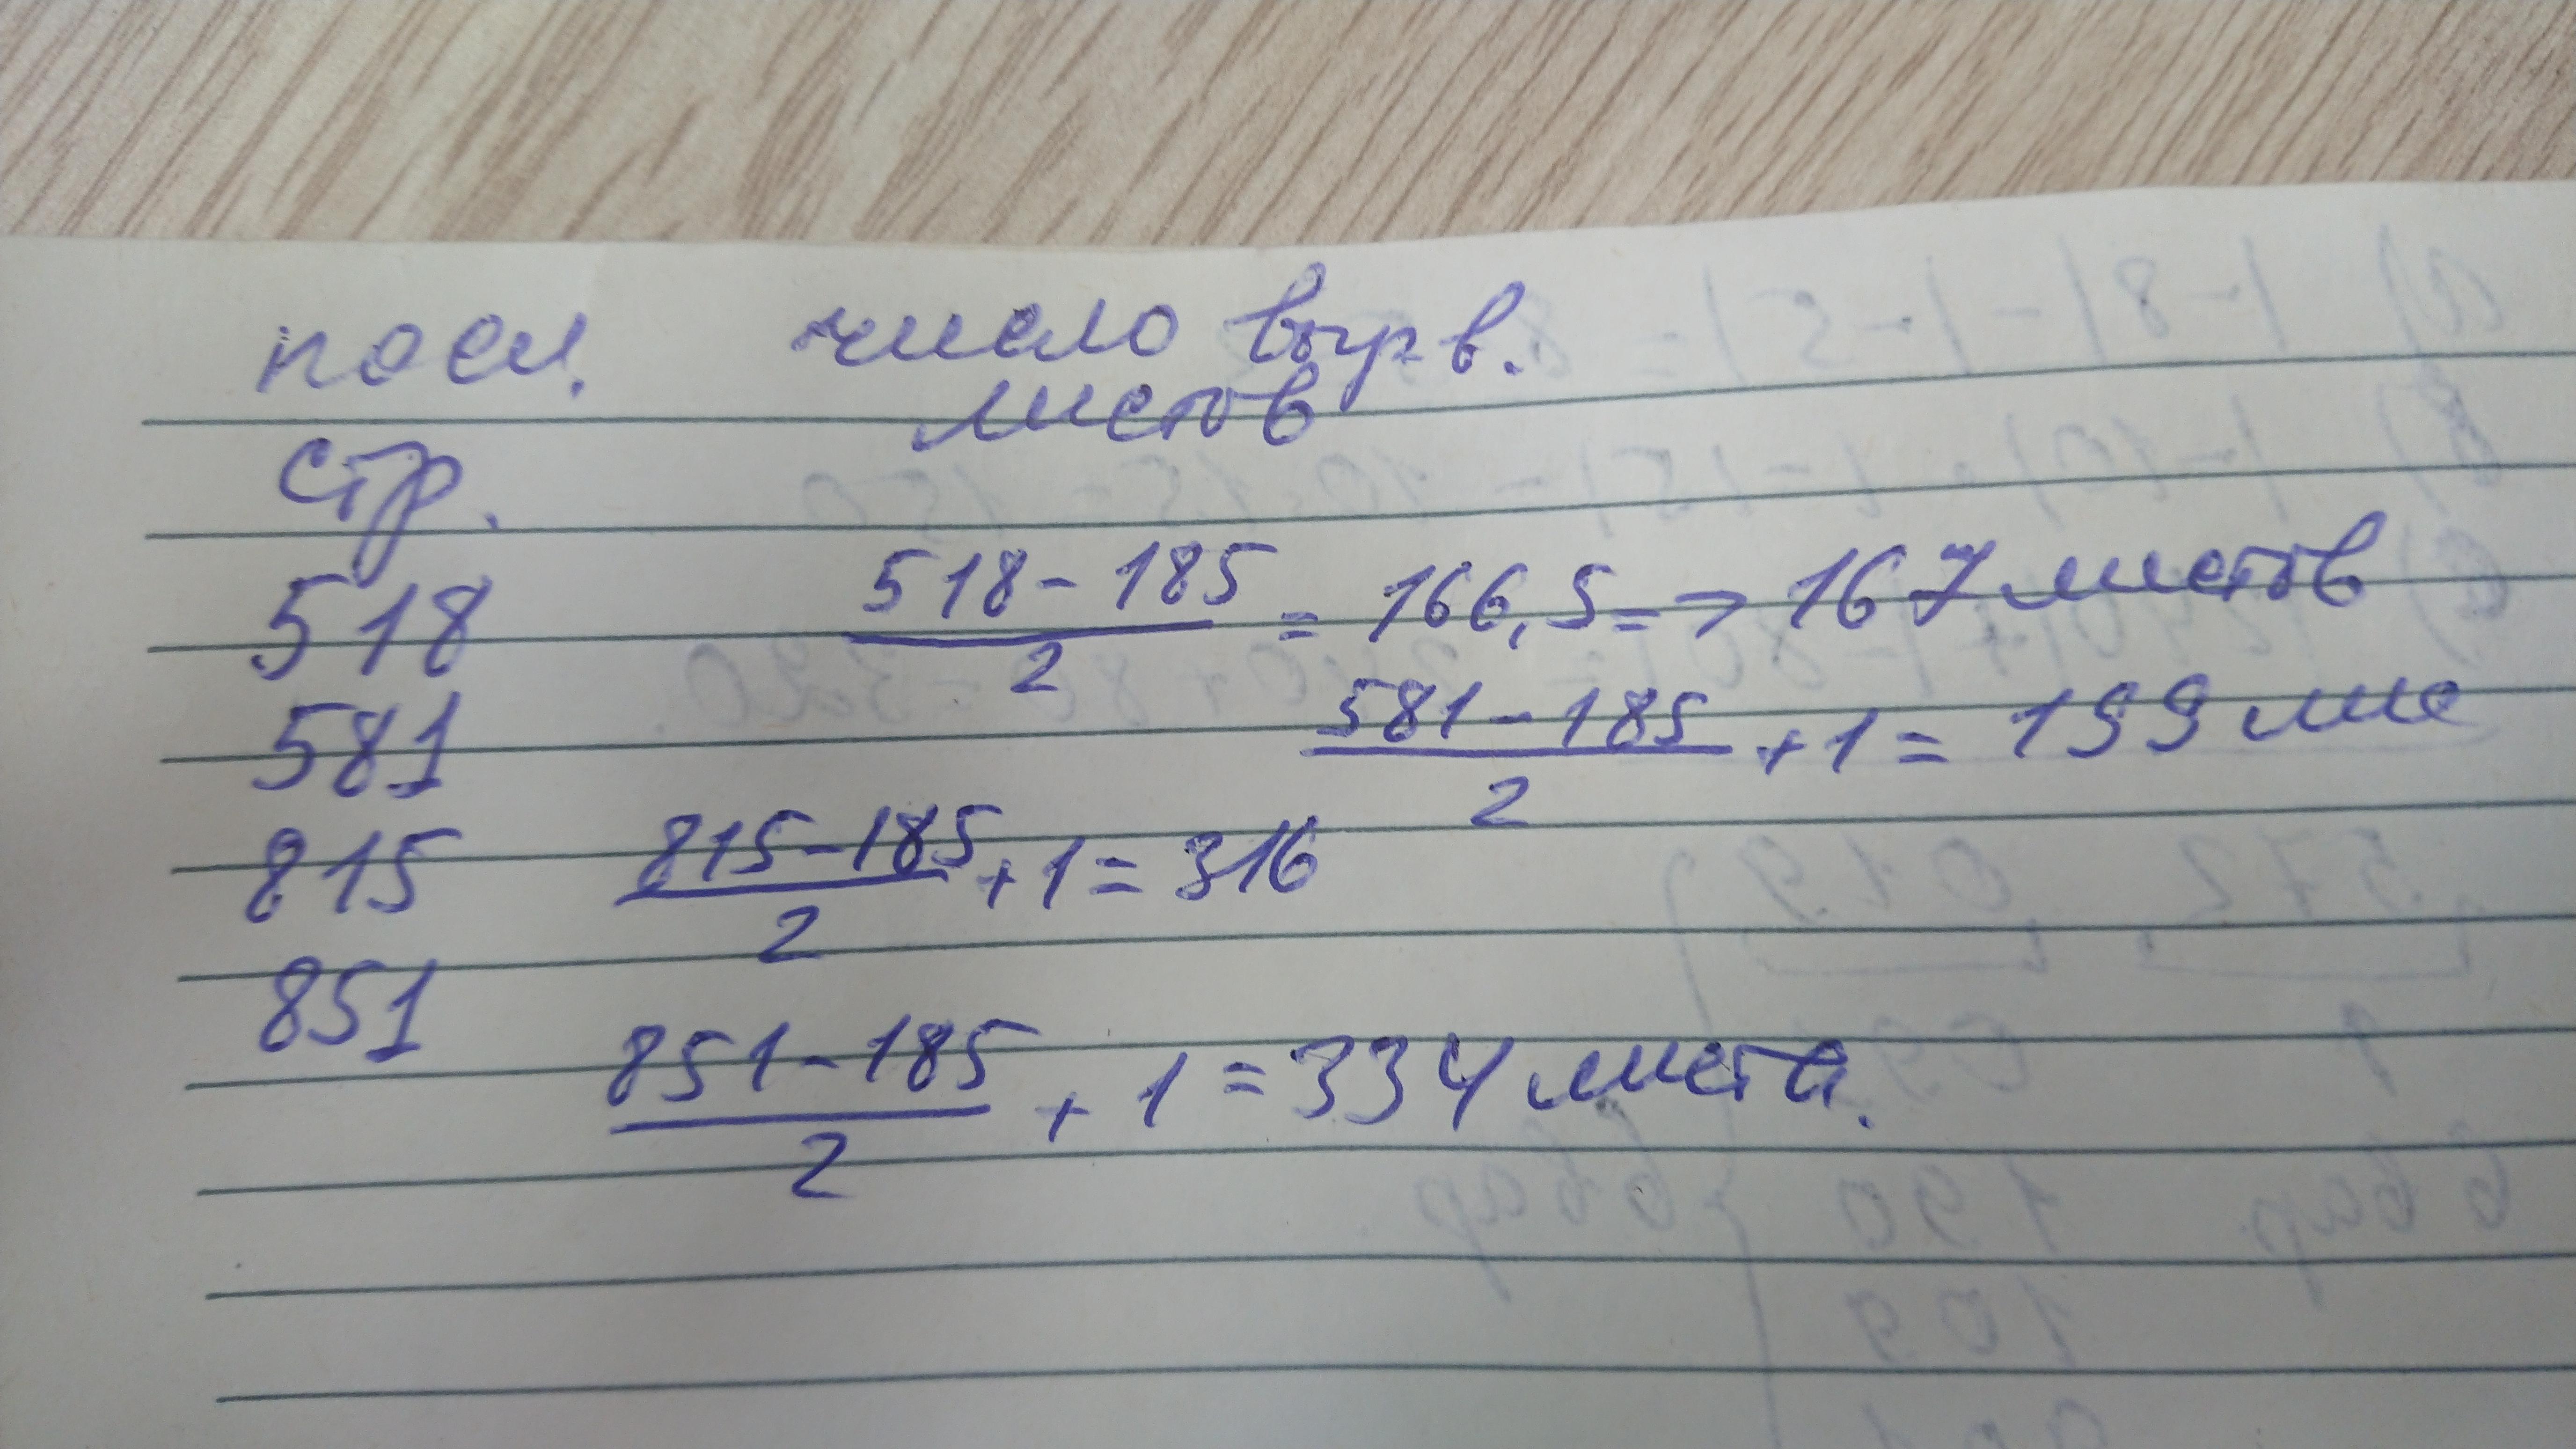 посл. число вырв.
листов
стр.
518 518-185/2 = 166,5 => 167 листов
581 581-185/2 + 1 = 199 лис
815 815-185/2 + 1 = 316
851 851-185/2 + 1 = 334 листа.